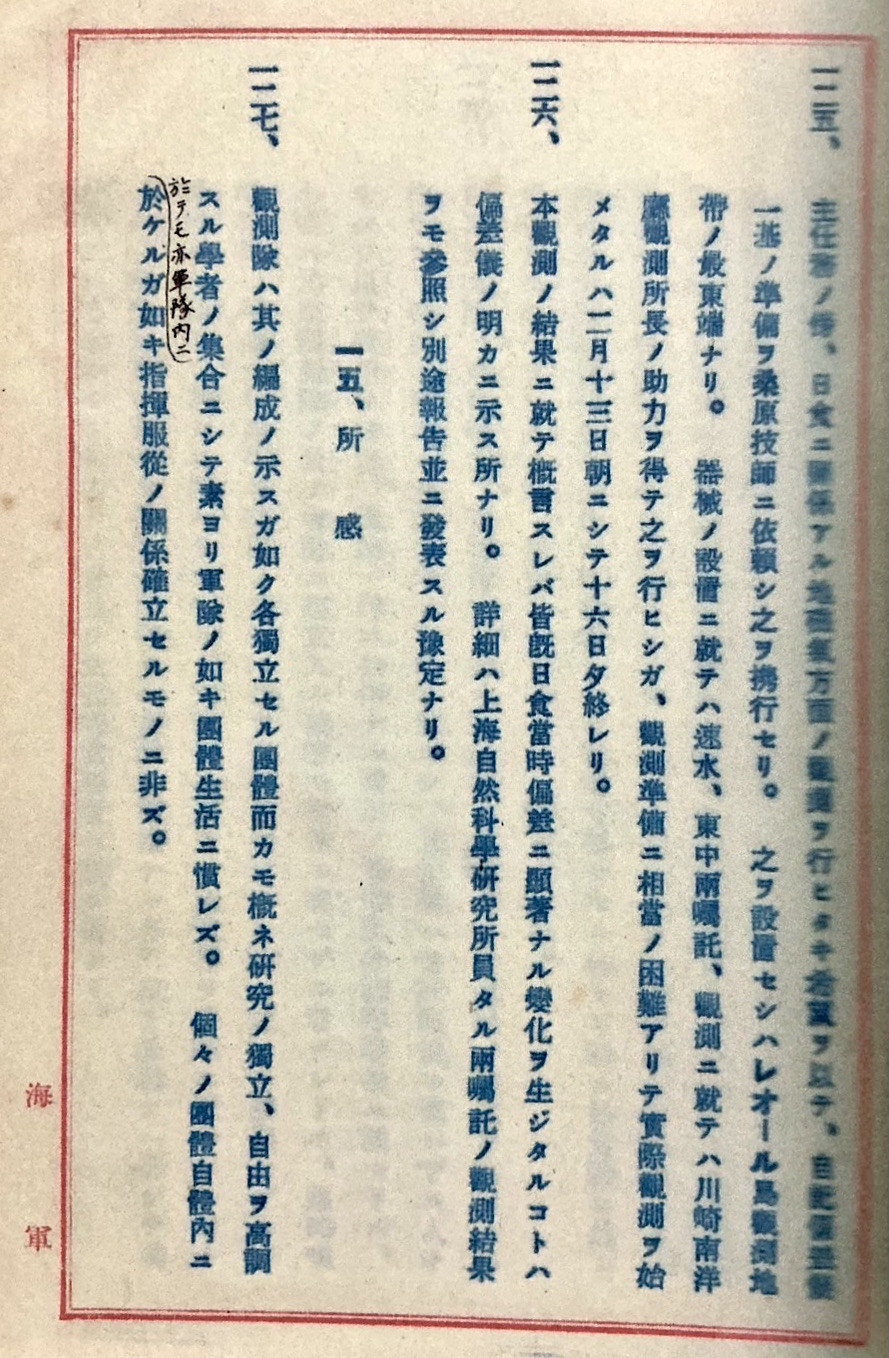 一二五、 主任務ノ傍、日食ニ關係アル地磁氣方面ノ觀測ヲ行ヒタキ希望ヲ以テ、自記偏差儀
一基ノ準備ヲ桑原技師ニ依頼シ之ヲ携行セリ。 之ヲ設置セシハレオール島觀測地
帶ノ最東端ナリ。 器械ノ設置ニ就テハ速水、東中兩囑託、觀測ニ就テハ川崎南洋
廳觀測所長ノ助力ヲ得テ之ヲ行ヒシガ、觀測準備ニ相當ノ困難アリテ實際觀測ヲ始
メタルハ二月十三日朝ニシテ十六日夕終レリ。
一二六、 本觀測ノ結果ニ就テ概言スレバ皆既日食當時偏差ニ顯著ナル變化ヲ生ジタルコトハ
偏差儀ノ明カニ示ス所ナリ。 詳細ハ上海自然科學研究所員タル兩囑託ノ觀測結果
ヲモ參照シ別途報告並ニ發表スル豫定ナリ。
一五、所 感
一二七、 觀測隊ハ其ノ編成ノ示スガ如ク各獨立セル團體而カモ概ネ研究ノ獨立、自由ヲ高調
スル學者ノ集合ニシテ素ヨリ軍隊ノ如キ團體生活ニ慣レズ。 個々ノ團體自體內ニ
於テモ亦軍隊內ニ
於ケルガ如キ指揮服從ノ關係確立セルモノニ非ズ。
海軍